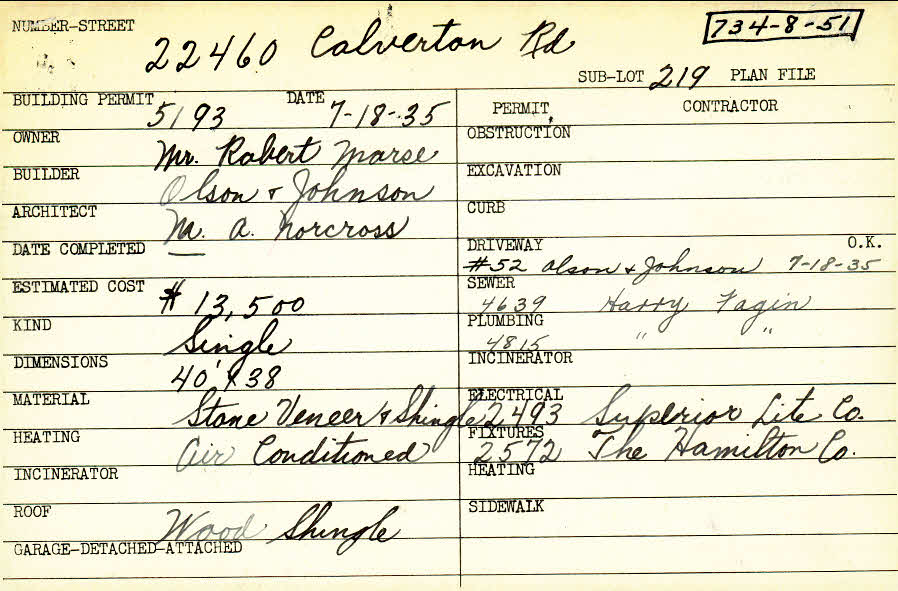 NUMBER-STREET 22460 Calverton Rd 734-8-51
SUB-LOT 219 PLAN FILE
BUILDING PERMIT 5193 DATE 7-18-35
OWNER Mr. Robert Marse
BUILDER Olson & Johnson
ARCHITECT M. A. Norcross
DATE COMPLETED —
ESTIMATED COST $13,500
KIND Single
DIMENSIONS 40' x 38
MATERIAL Stone Veneer & Shingle
HEATING Air Conditioned
INCINERATOR
ROOF Wood Shingle
GARAGE-DETACHED-ATTACHED
PERMIT CONTRACTOR
OBSTRUCTION
EXCAVATION
CURB
DRIVEWAY O.K.
#52 Olson & Johnson 7-18-35
SEWER
4639 Harry Fagin
PLUMBING
4815 " "
INCINERATOR
ELECTRICAL
2493 Superior Lite Co.
FIXTURES
2572 The Hamilton Co.
HEATING
SIDEWALK